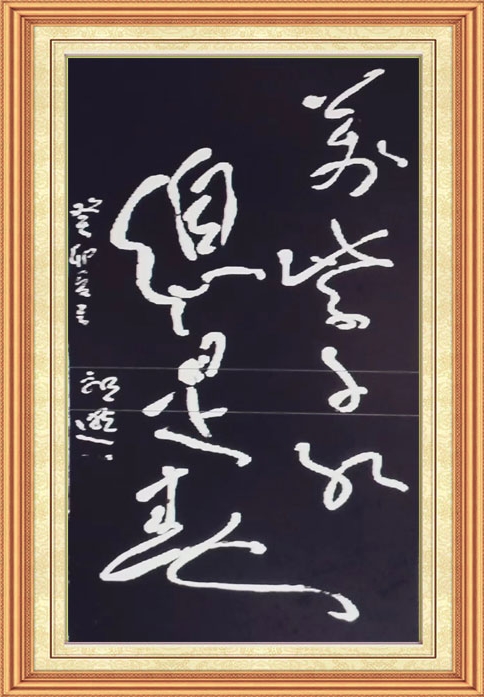 萬紫千紅
總是春
癸卯